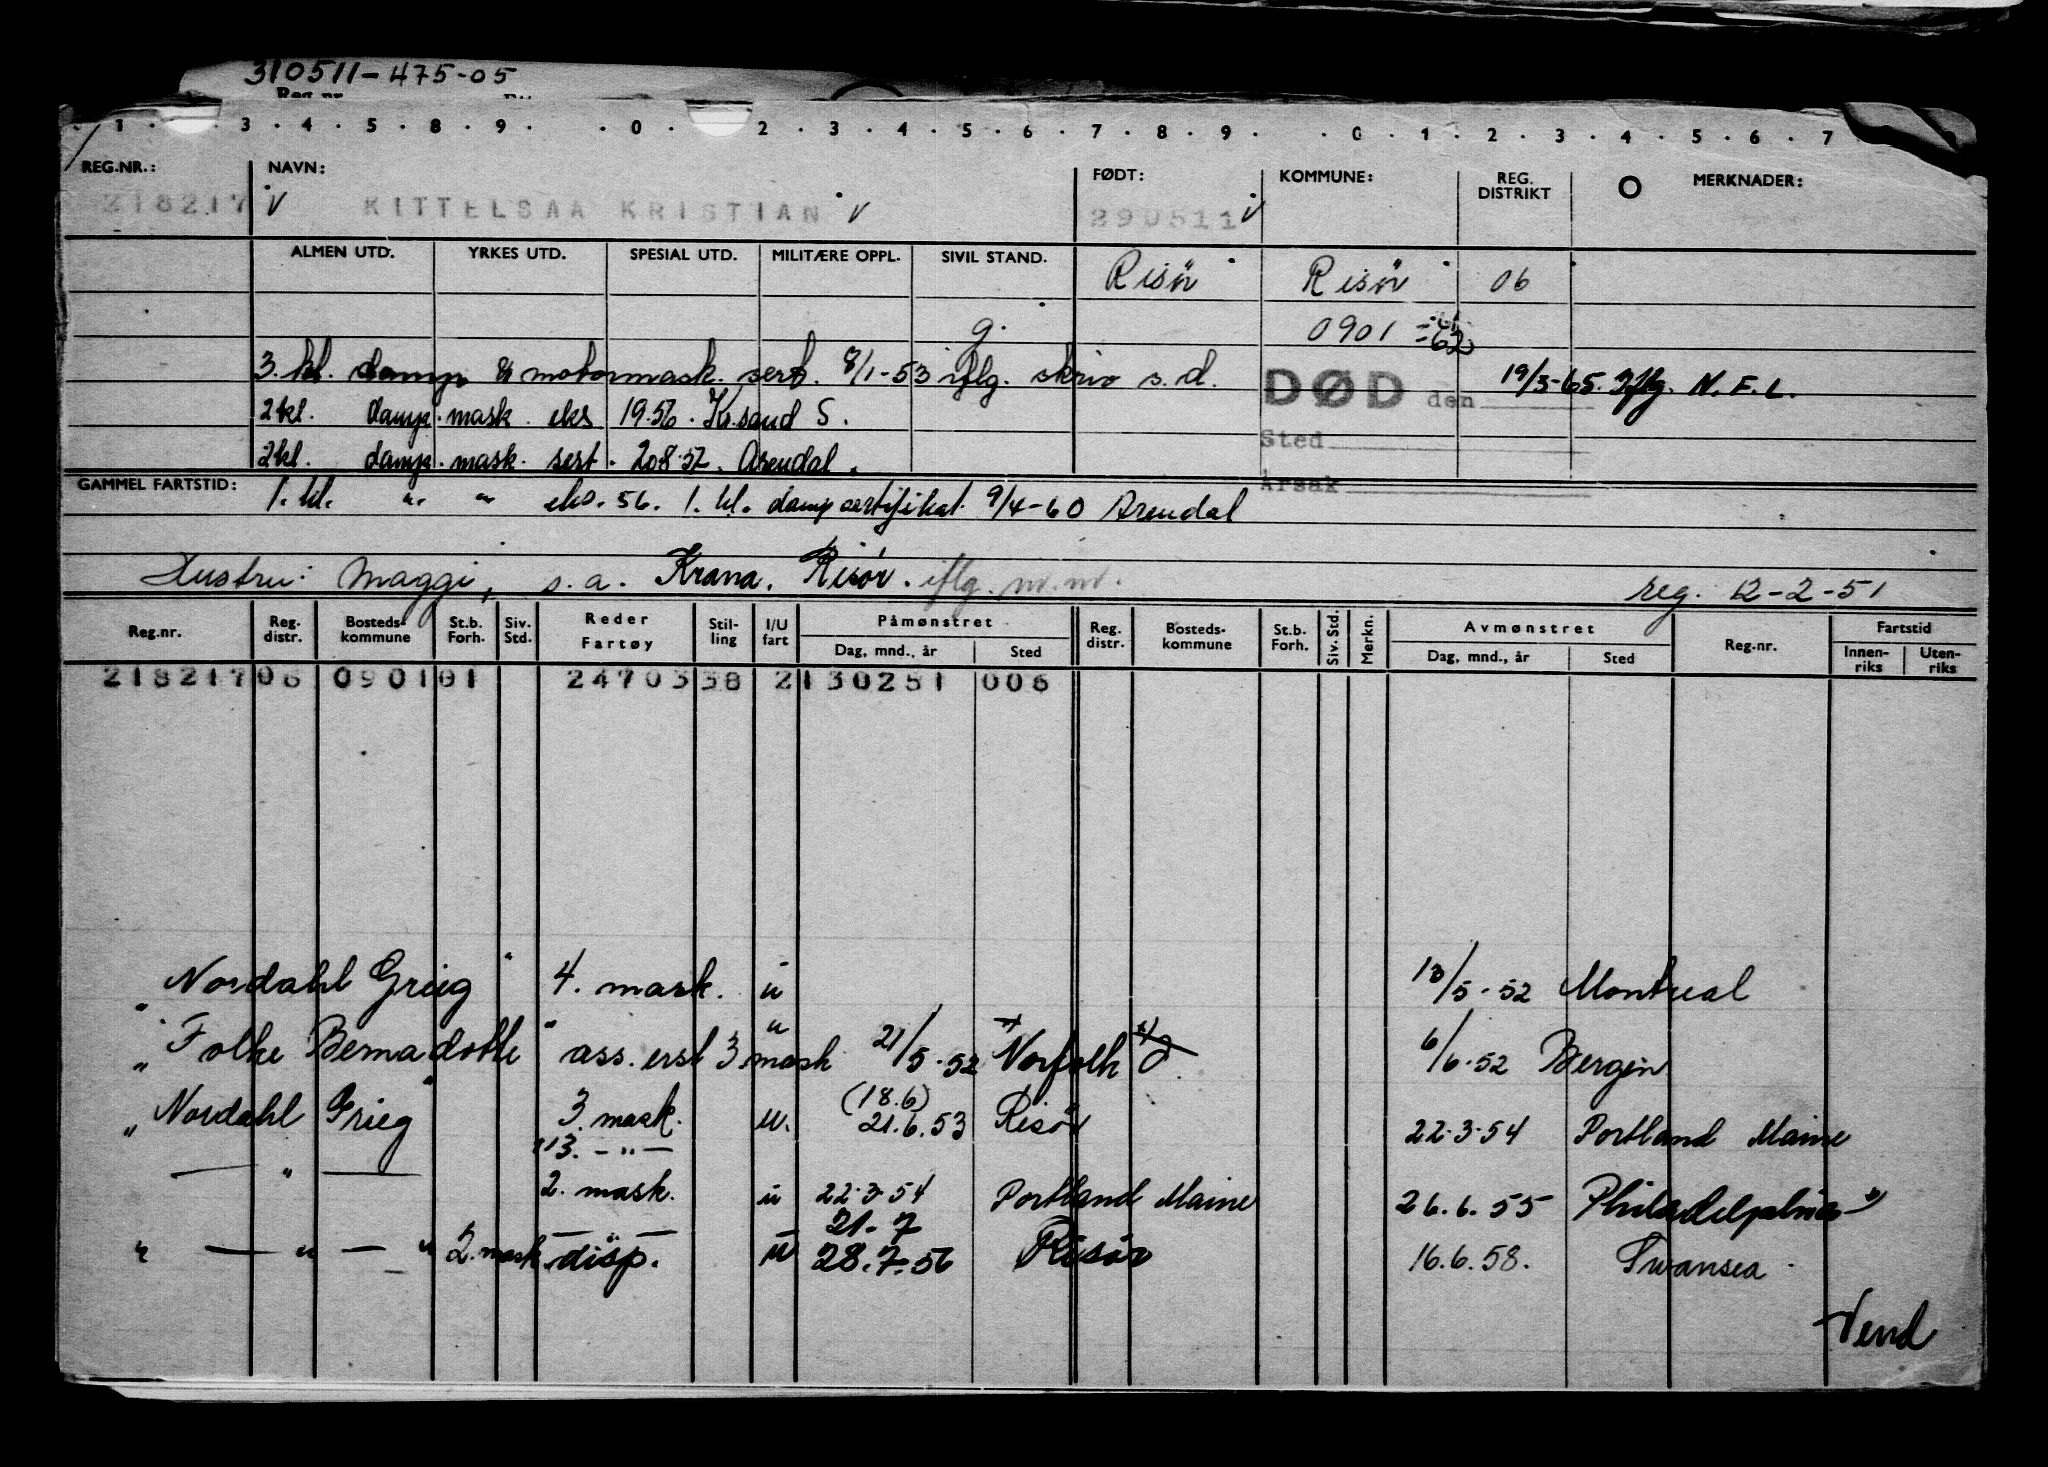 310511-475-05
Reg.nr.
1 . . 3 . 4 . 5 . 8 . 9 . . 0 . 2 . 3 . 4 . 5 . 6 . 7 . 8 . 9 . . 0 . 1 . 2 . 3 . 4 . 5 . 6 . 7
REG.NR.: NAVN: FØDT: KOMMUNE: REG. DISTRIKT O MERKNADER:
218217 v KITTELSAA KRISTIAN v 290511 v
ALMEN UTD. YRKES UTD. SPESIAL UTD. MILITÆRE OPPL. SIVIL STAND. Risör Risör 06
g. 0901 = 62
3. kl. damp & motormask. sert. 8/1-53 iflg. skriv s.d. DØD den 19/3-65. Iflg. N.F.L.
2kl. damp. mask. eks 1956. Kr.sand S.
Sted
2kl. damp. mask. sert. 20.8.57. Arendal.
Årsak
GAMMEL FARTSTID: 1. kl. " " eks. 56. 1. kl. dampsertifikat 9/4-60 Arendal
Hustru: Maggi, s.a. Krana. Risör. iflg. m.m. reg. 12-2-51
Reg.nr. Reg. distr. Bosteds-kommune St.b. Forh. Siv. Std. Reder Fartøy Stil-ling I/U fart Påmønstret Dag, mnd., år Sted Reg. distr. Bosteds-kommune St.b. Forh. Siv. Std. Merkn. Avmønstret Dag, mnd., år Sted Reg.nr. Fartstid Innen-riks Uten-riks
218217 06 0901 01 24703 38 2 130251 006
" Nordahl Grieg " 4. mask. u 13/5-52 Montreal
" Folke Bernadotte " ass. erst 3 mask " 21/5-52 Norfolk 6/6-52 Bergen
" Nordahl Grieg " 3. mask. u. (18.6) 21.6.53 Risör 22.3.54 Portland Maine
3. — " —
— " — 2. mask. u 22.3.54 Portland Maine 26.6.55 Philadelphia
21-7
" — " — " 2. mask. disp. u 28.7.56 Risör 16.6.58. Swansea
Vend